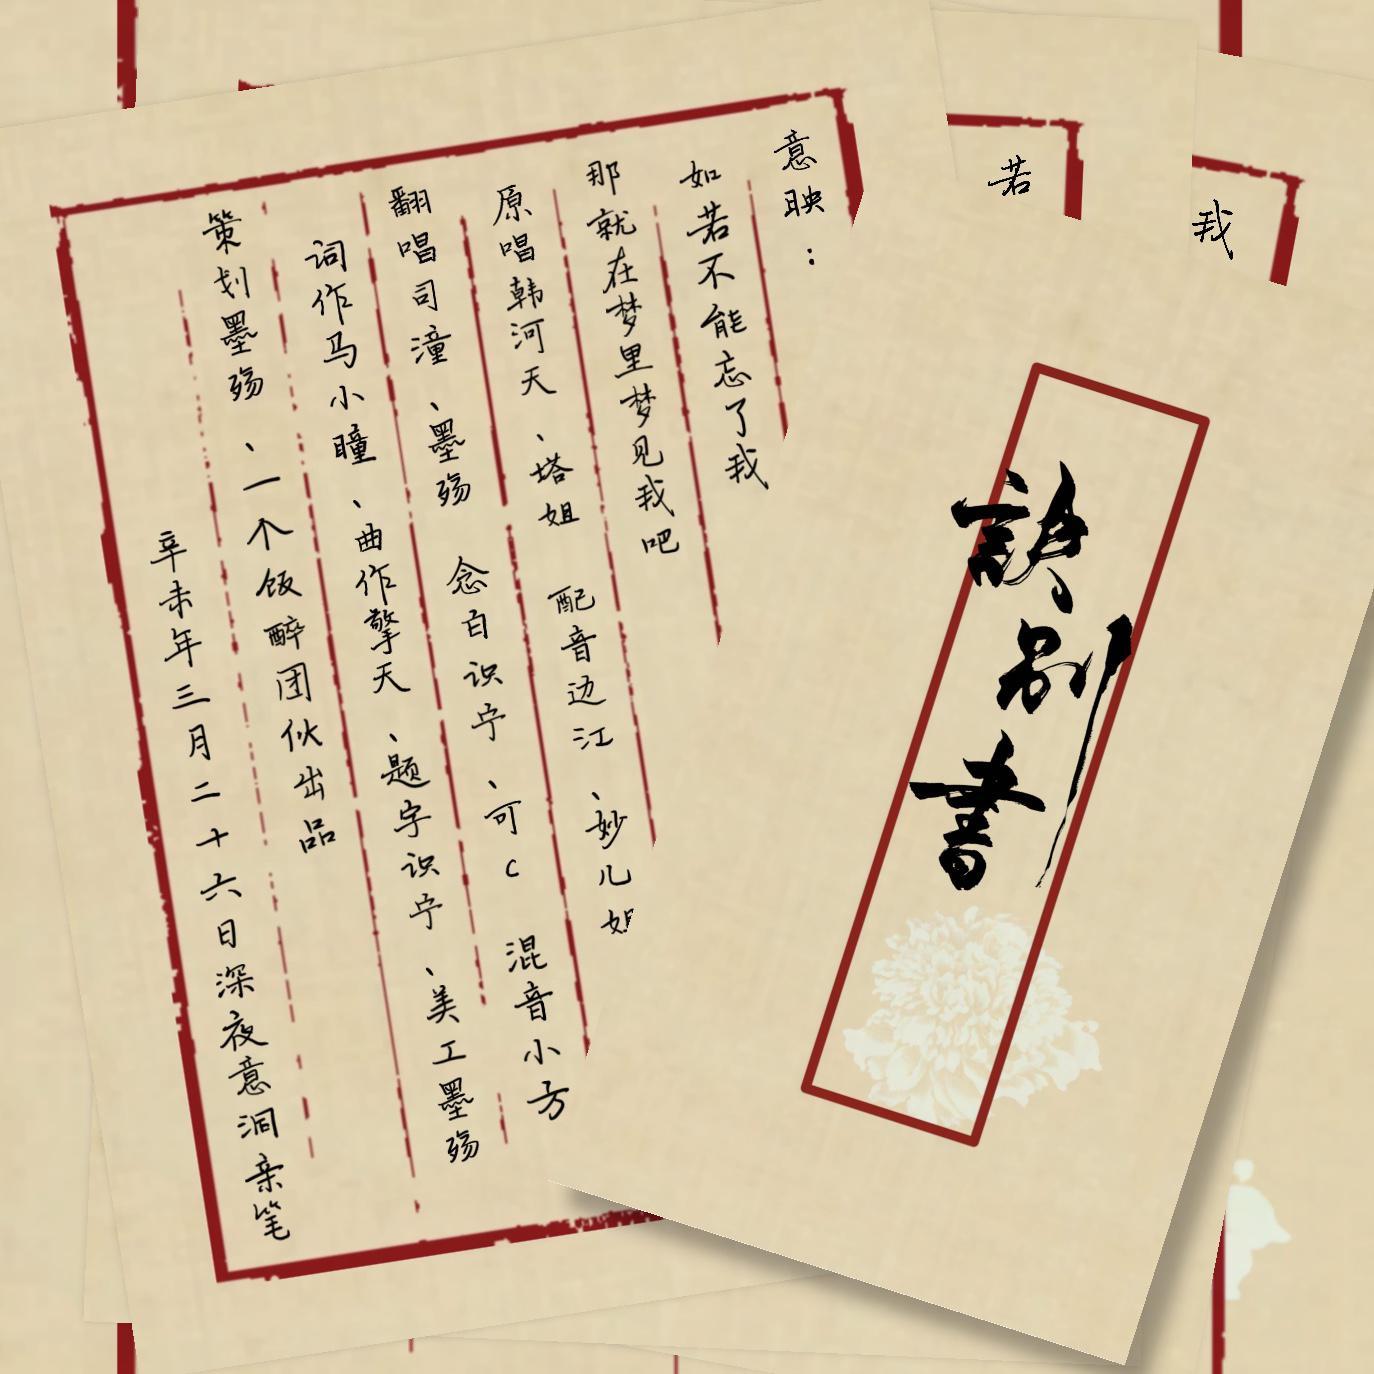 意映：
如若不能忘了我
那就在梦里梦见我吧
原唱韩河天、塔姐 配音边江、妙儿姐
翻唱司潼、墨殇 念白识宁、可C 混音小方
词作马小瞳、曲作擎天、题字识宁、美工墨殇
策划墨殇、一个饭醉团伙出品
辛未年三月二十六日深夜意洞亲笔
若
我
訣别書